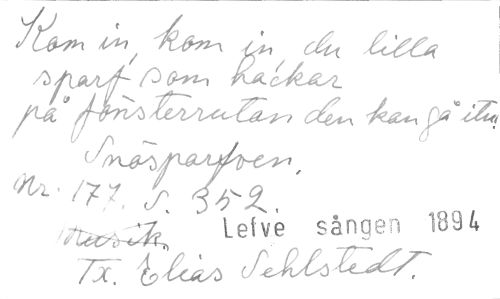 Kom in, kom in, du lilla
sparf som hackar
på fönsterrutan den kan gå itu!
Snösparfven.
Nr. 177. S. 352.
Musik. Lefve sången 1894
Tx. Elias Sehlstedt.